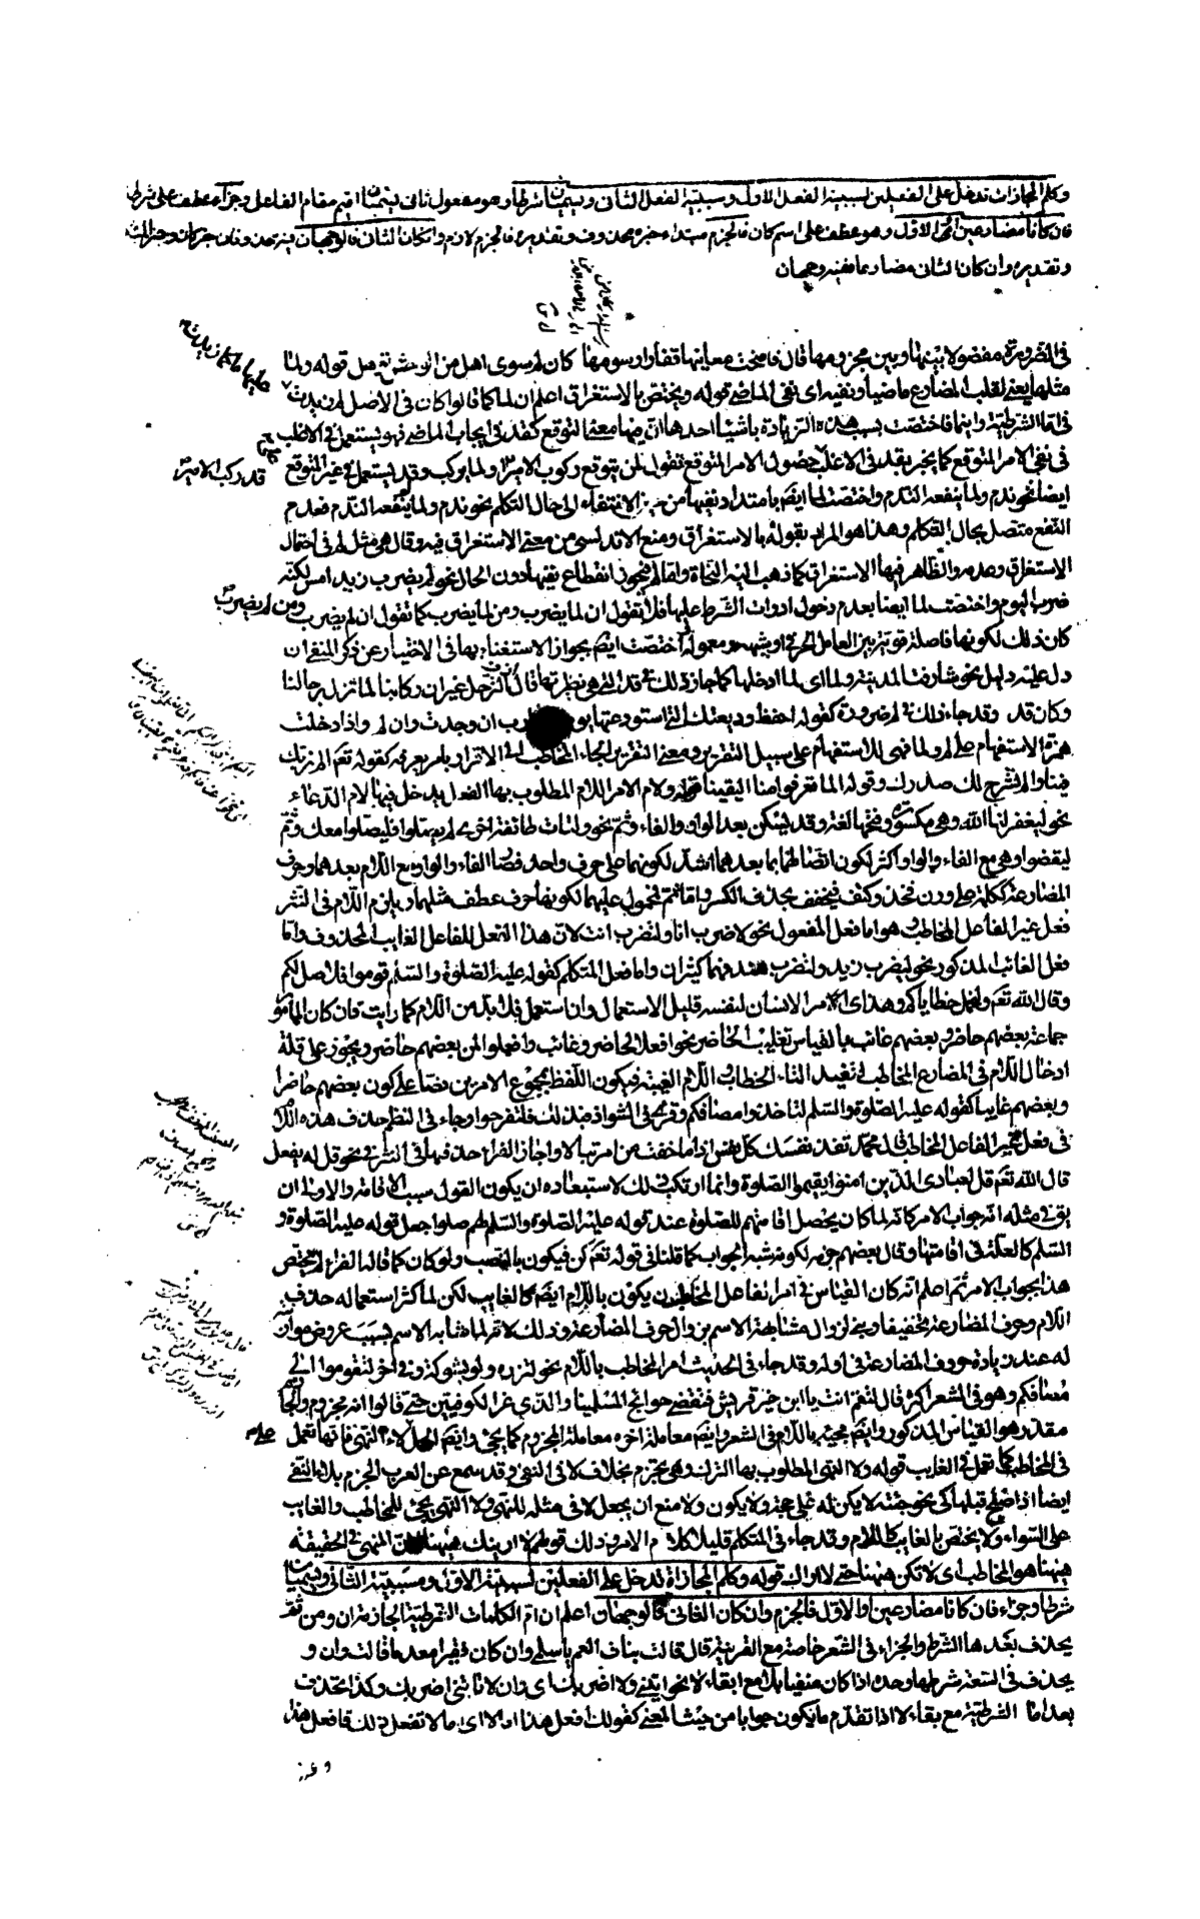 وكلم المجازات تدخل على الفعلين لسببية الفعل الاول ومسببية الفعل الثانى ويسميان شرطا وهو مفعول ثانى ليسميان اقيم مقام الفاعل وجزاء عطف على شرطا
فان كانا مضارعين او الاول وهو عطف على اسم كان فالجزم مبتداء خبره محذوف وتقديره فالجزم لازم وان كان الثانى فالوجهان
وتقديره وان كان الثانى مضارعا ففيه وجهان
فى الضرورة مفصولا بينها وبين مجزومها قال فاضحت مغانيها قفارا رسومها كان لم سوى اهل من الوحش تؤهل قوله ولما
مثلها يعنى لقلب المضارع ماضيا ونفيه اى نفى الماضى قوله ويختص بالاستغراق اعلم ان لما كما قالوا كان فى الاصل لم زيدت
عليها ما كما زيدت
فى اما الشرطية واينما فاختصت بسبب هذه الزيادة باشياء احدها ان فيها معنى التوقع كقد فى ايجاب الماضى فهو يستعمل فى الاغلب
فى نفى الامر المتوقع كما يخبر بقد فى الاغلب عن حصول الامر المتوقع تقول لمن يتوقع ركوب الامير لما يركب وقد يستعمل فى غير المتوقع
قد ركب الامير
ايضا نحو ندم ولما ينفعه الندم واختصت لما ايضا بامتداد نفيها من حين الانتفاء الى حال التكلم نحو ندم ولما ينفعه الندم فعدم
النفع متصل بحال التكلم وهذا هو المراد بقوله بالاستغراق ومنع الاندلسى من معنى الاستغراق فيه وقال هى مثل لم فى احتمال
الاستغراق وعدمه والظاهر فيها الاستغراق كما ذهب اليه النحاة واما لم فيجوز انقطاع نفيها دون الحال نحو لم يضرب زيد امس لكنه
ضرب اليوم واختصت لما ايضا بعدم دخول ادوات الشرط عليها فلا تقول ان لما يضرب ومن لما يضرب كما تقول ان لم يضرب ومن لم يضرب
كان ذلك لكونها فاصلة قوية بين العامل الحرفى او شبهه ومعموله واختصت ايضا بجواز الاستغناء بها فى الاختيار عن ذكر المنفى ان
دل عليه دليل نحو شارفت المدينة ولما اى لما ادخلها كما جاز ذلك فى قد التى هى نظيرتها قال ازف الترحل غير ان ركابنا لما تزل برحالنا
وكان قد وقد جاء ذلك فى لم ضرورة كقوله احفظ وديعتك التى استودعتها يوم ان وجدت وان لم واذا دخلت
همزة الاستفهام على لم ولما فهى للاستفهام على سبيل التقرير ومعنى التقرير الجاء المخاطب الى الاقرار بامر يعرفه كقوله تعالى الم نربك
فينا والم نشرح لك صدرك وقوله الما تعرفوا منا اليقينا قوله ولام الامر اللام المطلوب بها الفعل يدخل فيها لام الدعاء
نحو ليغفر لنا الله وهى مكسورة وفتحها لغة وقد يسكن بعد الواو والفاء وثم نحو ولتات طائفة اخرى لم يصلوا فليصلوا معك وثم
ليقضوا وهى مع الفاء والواو اكثر لكون اتصالهما بما بعدهما اشد لكونهما على حرف واحد فصار الفاء والواو مع اللام بعدهما وحرف
المضارعة ككلمة على وزن فخذ وكتف فيخفف بحذف الكسر واما ثم فمحمول عليهما لكونها حرف عطف مثلهما ويلزم اللام فى النثر
فعل غير الفاعل المخاطب وهو اما فعل المفعول نحو لاضرب انا ولتضرب انت لان هذا الفعل للفاعل الغايب المحذوف واما
فعل الغائب المذكور نحو ليضرب زيد ولتضرب هند فهما كثيران واما فعل المتكلم كقوله عليه الصلوة والسلم قوموا فلاصل لكم
وقال الله تعم ولنحمل خطاياكم وهذا اى امر الانسان لنفسه قليل الاستعمال وان استعمل فلا بد من اللام كما رايت فان كان المامور
جماعة بعضهم حاضر وبعضهم غائب فالقياس تغليب الحاضر نحو افعلا لحاضر وغائب وافعلوا لمن بعضهم حاضر ويجوز على قلة
ادخال اللام فى المضارع المخاطب لتفيد التاء الخطاب واللام الغيبة فيكون اللفظ بمجموع الامرين نصا على كون بعضهم حاضرا
وبعضهم غايبا كقوله عليه الصلوة والسلم لتاخذوا مصافكم وقرئ فى الشواذ فبذلك فلتفرحوا وجاء فى النظم حذف هذه اللام
فى فعل غير الفاعل المخاطب قال محمد تفد نفسك كل نفس اذا ما خفت من امر تبالا واجاز الفراء حذفها فى النثر فى نحو قل له يفعل
قال الله تعم قل لعبادى الذين امنوا يقيموا الصلوة وانما ارتكب ذلك لاستبعاده ان يكون القول سبب الاقامة والاولى ان
يق فى مثله انه جواب الامر كانه لما كان يحصل اقامتهم للصلوة عند قوله عليه الصلوة والسلم لهم صلوا جعل قوله عليه الصلوة و
السلم كالعلة فى اقامتها وقال بعضهم جزمه لكونه شبه الجواب كما قلنا فى قوله تعم كن فيكون بالنصب ولو كان كما قال الفراء لم يختص
هذا بجواب الامر ثم اعلم انه كان القياس فى امر الفاعل المخاطب ان يكون باللام ايضا كالغايب لكن لما كثر استعماله حذف
اللام وحرف المضارعة تخفيفا وبنى لزوال مشابهة الاسم بزوال حرف المضارعة وذلك لانه لما شابه الاسم بسبب عروض موازنته
له عند زيادة حروف المضارعة فى اوله وقد جاء فى الحديث امر المخاطب باللام نحو لتزره ولو بشوكة وفى اخر لتقوموا الى
مصافكم وهو فى الشعر اكثر قال لتقم انت يا ابن خير قريش فتقضى حوائج المسلمينا والذى غر الكوفيين حتى قالوا انه مجزوم والجازم
مقدر هو القياس المذكور وايضا مجيئه باللام فى الشعر وايضا معاملة اخره معاملة المجزوم كما يجئ وايضا الحمل على لاء النهى فانها تعمل
فى المخاطب كما تعمل فى الغايب قوله ولا النهى المطلوب بها الترك وهى يجزم بخلاف لا فى النفى وقد سمع عن العرب الجزم بلاء النفى
ايضا اذا صلح قبلها كى نحو جئته لا يكن له على حجة ولا يكون ولا منع ان يجعل لا فى مثله للنهى ولا النهى يجئ للمخاطب والغايب
على السواء ولا يختص بالغايب كاللام وقد جاء فى المتكلم قليلا كلام الامر وذلك قولهم لا ارينك ههنا لان المنهى فى الحقيقة
ههنا هو المخاطب اى لا تكن ههنا حتى لا اراك قوله وكلم المجازاة تدخل على الفعلين لسببية الاول ومسببية الثانى ويسميان
شرطا وجزاء فان كانا مضارعين او الاول فالجزم وان كان الثانى فالوجهان اعلم ان ام الكلمات الشرطية الجازمة ان ومن ثم
يحذف بعدها الشرط والجزاء فى الشعر خاصة مع القرينة قال قالت بنات العم يا سلمى وان كان فقيرا معدما قالت وان و
يحذف فى السعة شرطها وحده اذا كان منفيا بلا مع ابقاء لا نحو ايتنى والا اضربك اى وان لا تاتنى اضربك وكذا تحذف
بعد اما الشرطية مع بقاء لا اذا تقدم ما يكون جوابا من حيث المعنى كقولك افعل هذا اما لا اى اما لا تفعل ذلك فافعل هذا